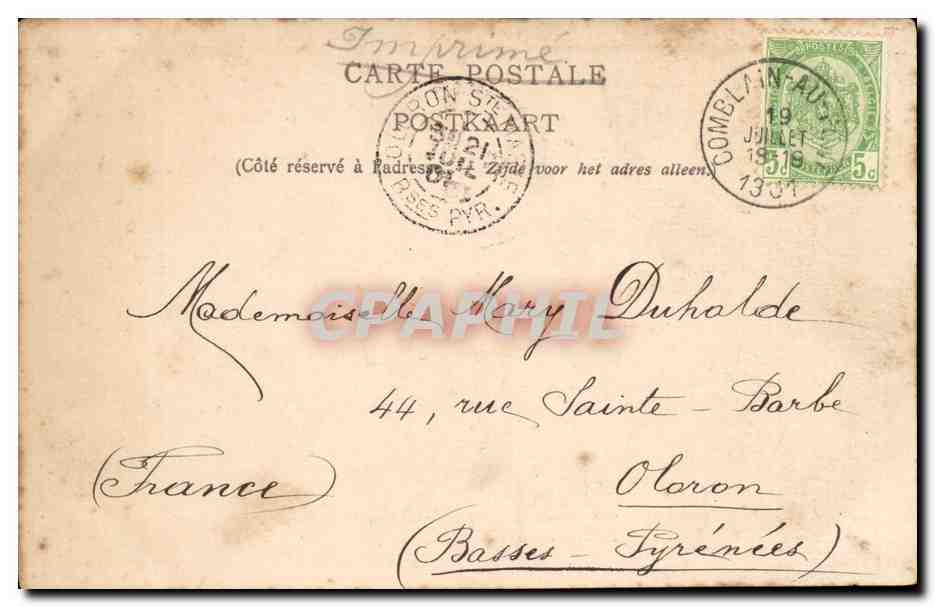 Imprimé
CARTE POSTALE
POSTKAART
(Côté réservé à l'adresse Zijde voor het adres alleen.
COMBLAIN-AU-
19
JUILLET
18-19
1901
POSTES
5c 5c
OLORON STE
21
JUIL
BSES PYR.
Mademoiselle Mary Duhalde
44, rue Sainte-Barbe
Oloron
(France)
(Basses-Pyrénées)
CPAPHIL